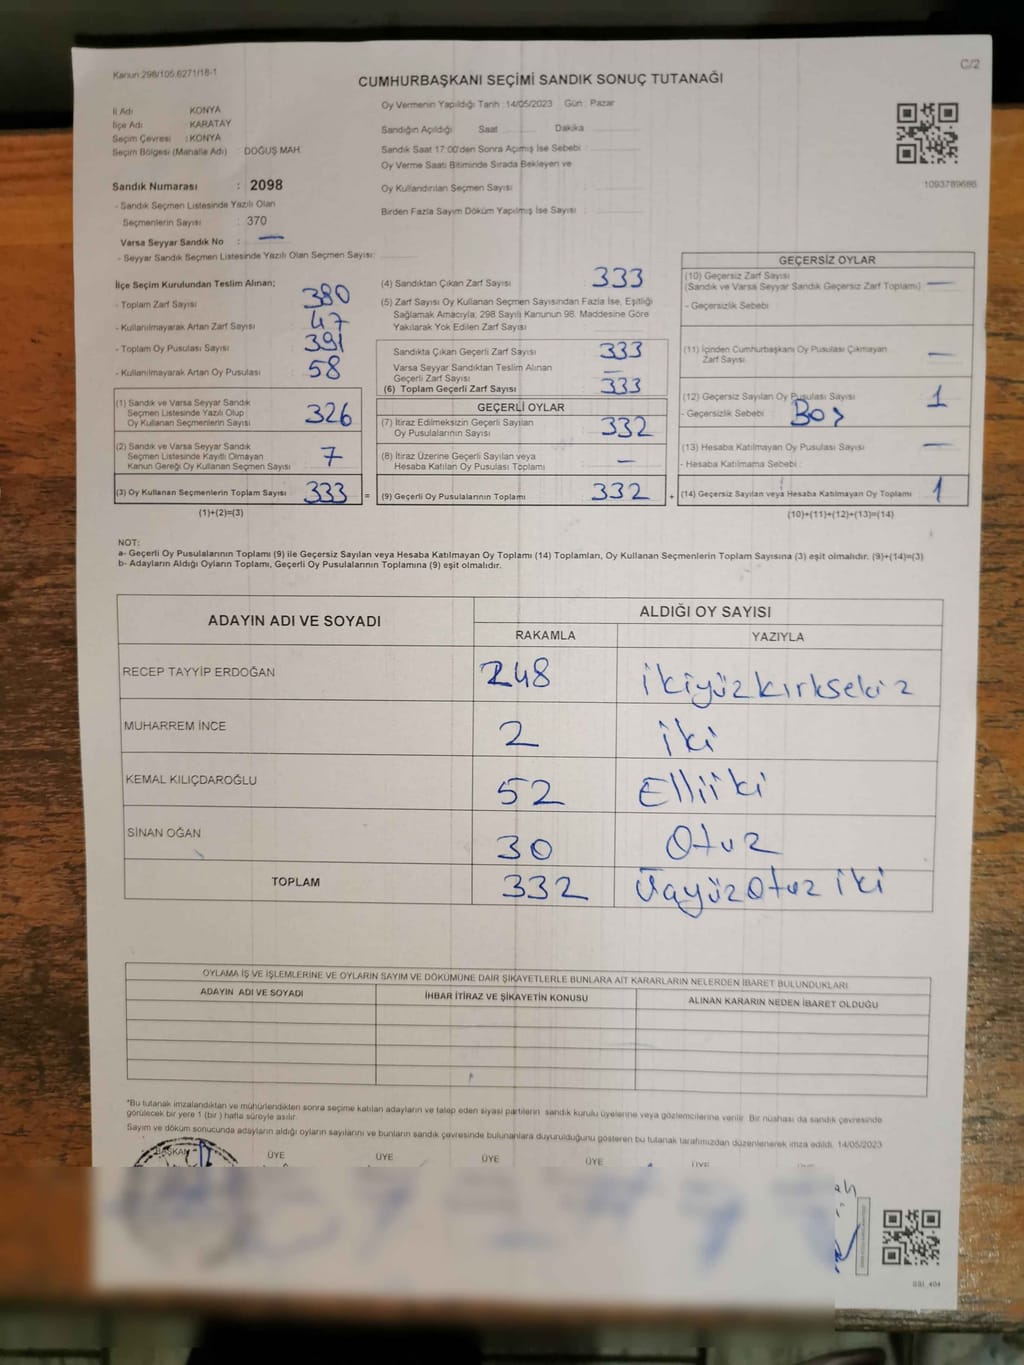 Kanun:298/105,6271/18-1
C/2
CUMHURBAŞKANI SEÇİMİ SANDIK SONUÇ TUTANAĞI
İl Adı KONYA
İlçe Adı KARATAY
Seçim Çevresi : KONYA
Seçim Bölgesi (Mahalle Adı) DOĞUŞ MAH.
Oy Vermenin Yapıldığı Tarih : 14/05/2023 Gün : Pazar
Sandığın Açıldığı Saat Dakika
Sandık Saat 17:00'den Sonra Açımış İse Sebebi
Oy Verme Saati Bitiminde Sırada Bekleyen ve
Oy Kullandırılan Seçmen Sayısı :
Birden Fazla Sayım Döküm Yapılmış İse Sayısı :
1093789686
Sandık Numarası : 2098
- Sandık Seçmen Listesinde Yazılı Olan
Seçmenlerin Sayısı : 370
Varsa Seyyar Sandık No : —
- Seyyar Sandık Seçmen Listesinde Yazılı Olan Seçmen Sayısı:
İlçe Seçim Kurulundan Teslim Alınan;
- Toplam Zarf Sayısı 380
- Kullanılmayarak Artan Zarf Sayısı 47
- Toplam Oy Pusulası Sayısı 391
- Kullanılmayarak Artan Oy Pusulası 58
(1) Sandık ve Varsa Seyyar Sandık
Seçmen Listesinde Yazılı Olup
Oy Kullanan Seçmenlerin Sayısı 326
(2) Sandık ve Varsa Seyyar Sandık
Seçmen Listesinde Kayıtlı Olmayan
Kanun Gereği Oy Kullanan Seçmen Sayısı 7
(3) Oy Kullanan Seçmenlerin Toplam Sayısı 333 =
(1)+(2)=(3)
(4) Sandıktan Çıkan Zarf Sayısı 333
(5) Zarf Sayısı Oy Kullanan Seçmen Sayısından Fazla İse, Eşitliği
Sağlamak Amacıyla, 298 Sayılı Kanunun 98. Maddesine Göre
Yakılarak Yok Edilen Zarf Sayısı
Sandıkta Çıkan Geçerli Zarf Sayısı 333
Varsa Seyyar Sandıktan Teslim Alınan
Geçerli Zarf Sayısı —
(6) Toplam Geçerli Zarf Sayısı 333
GEÇERLİ OYLAR
(7) İtiraz Edilmeksizin Geçerli Sayılan
Oy Pusulalarının Sayısı 332
(8) İtiraz Üzerine Geçerli Sayılan veya
Hesaba Katılan Oy Pusulası Toplamı —
(9) Geçerli Oy Pusulalarının Toplamı 332 +
GEÇERSİZ OYLAR
(10) Geçersiz Zarf Sayısı
(Sandık ve Varsa Seyyar Sandık Geçersiz Zarf Toplamı) —
- Geçersizlik Sebebi
(11) İçinden Cumhurbaşkanı Oy Pusulası Çıkmayan
Zarf Sayısı —
(12) Geçersiz Sayılan Oy Pusulası Sayısı 1
- Geçersizlik Sebebi Boş
(13) Hesaba Katılmayan Oy Pusulası Sayısı —
- Hesaba Katılmama Sebebi :
(14) Geçersiz Sayılan veya Hesaba Katılmayan Oy Toplamı 1
(10)+(11)+(12)+(13)=(14)
NOT:
a- Geçerli Oy Pusulalarının Toplamı (9) ile Geçersiz Sayılan veya Hesaba Katılmayan Oy Toplamı (14) Toplamları, Oy Kullanan Seçmenlerin Toplam Sayısına (3) eşit olmalıdır. (9)+(14)=(3)
b- Adayların Aldığı Oyların Toplamı, Geçerli Oy Pusulalarının Toplamına (9) eşit olmalıdır.
ADAYIN ADI VE SOYADI ALDIĞI OY SAYISI
RAKAMLA YAZIYLA
RECEP TAYYİP ERDOĞAN 248 ikiyüzkırksekiz
MUHARREM İNCE 2 iki
KEMAL KILIÇDAROĞLU 52 Elliiki
SİNAN OĞAN 30 Otuz
TOPLAM 332 Üçyüzotuz iki
OYLAMA İŞ VE İŞLEMLERİNE VE OYLARIN SAYIM VE DÖKÜMÜNE DAİR ŞİKAYETLERLE BUNLARA AİT KARARLARIN NELERDEN İBARET BULUNDUKLARI
ADAYIN ADI VE SOYADI İHBAR İTİRAZ VE ŞİKAYETİN KONUSU ALINAN KARARIN NEDEN İBARET OLDUĞU
*Bu tutanak imzalandıktan ve mühürlendikten sonra seçime katılan adayların ve talep eden siyasi partilerin sandık kurulu üyelerine veya gözlemcilerine verilir. Bir nüshası da sandık çevresinde
görülecek bir yere 1 (bir) hafta süreyle asılır.
Sayım ve döküm sonucunda adayların aldığı oyların sayılarını ve bunların sandık çevresinde bulunanlara duyurulduğunu gösteren bu tutanak tarafımızdan düzenlenerek imza edildi. 14/05/2023
BAŞKAN ÜYE ÜYE ÜYE ÜYE ÜYE